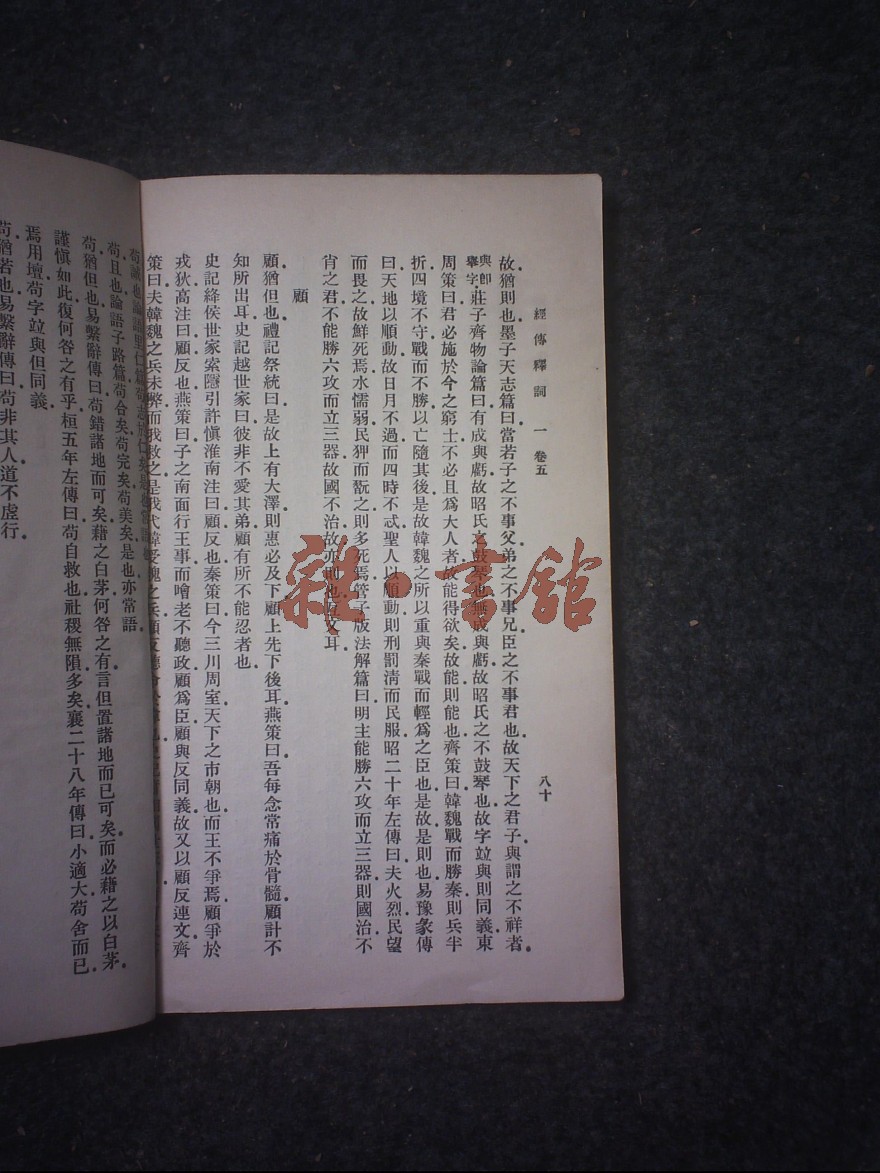 經傳釋詞 一 卷五
八十
故猶則也墨子天志篇曰當若子之不事父弟之不事兄臣之不事君也故天下之君子與謂之不祥者
與卽舉字莊子齊物論篇曰有成與虧故昭氏之鼓琴也無成與虧故昭氏之不鼓琴也故字竝與則同義東
周策曰君必施於今之窮士不必且爲大人者故能得欲矣故能則能也齊策曰韓魏戰而勝秦則兵半
折四境不守戰而不勝以亡隨其後是故韓魏之所以重與秦戰而輕爲之臣也是故是則也易豫彖傳
曰天地以順動故日月不過而四時不忒聖人以順動則刑罰淸而民服昭二十年左傳曰夫火烈民望
而畏之故鮮死焉水懦弱民狎而翫之則多死焉管子版法解篇曰明主能勝六攻而立三器則國治不
肖之君不能勝六攻而立三器故國不治故亦則也互文耳
顧
顧猶但也禮記祭統曰是故上有大澤則惠必及下顧上先下後耳燕策曰吾每念常痛於骨髓顧計不
知所出耳史記越世家曰彼非不愛其弟顧有所不能忍者也
史記絳侯世家索隱引許愼淮南注曰顧反也秦策曰今三川周室天下之市朝也而王不爭焉顧爭於
戎狄高注曰顧反也燕策曰子之南面行王事而噲老不聽政顧爲臣顧與反同義故又以顧反連文齊
策曰夫韓魏之兵未弊而我救之是我代韓受魏之兵顧反聽
苟誠也論語里仁篇苟志於仁矣是也常語也
苟且也論語子路篇苟合矣苟完矣苟美矣是也亦常語
苟猶但也易繫辭傳曰苟錯諸地而可矣藉之白茅何咎之有言但置諸地而已可矣而必藉之以白茅
謹愼如此復何咎之有乎桓五年左傳曰苟自救也社稷無隕多矣襄二十八年傳曰小適大苟舍而已
焉用壇苟字竝與但同義
苟猶若也易繫辭傳曰苟非其人道不虛行
雜·書館